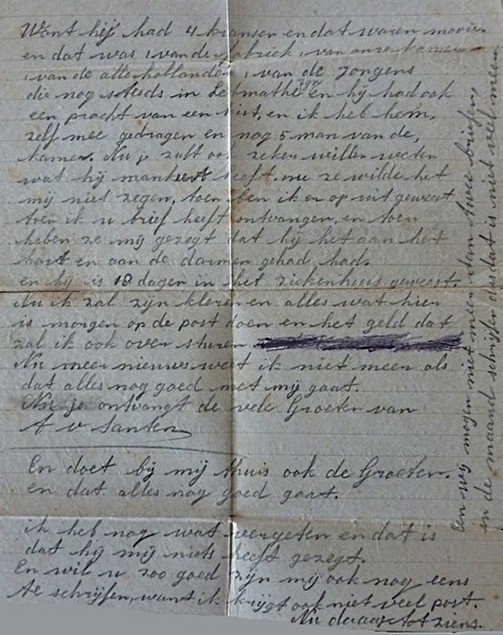 Want hij had 4 kransen en dat waren mooie
en dat was 1 van de fabriek 1 van onze kamer
1 van de alle hollanders 1 van de Jongens
die nog steeds in Letmathe en hij had ook
een pracht van een kist, en ik heb hem
zelf mee gedragen en nog 5 man van de,
kamer. Nu u zult ook zeker willen weten
wat hij mankeert heeft. nu ze wilde het
mij niet zegen, toen ben ik er op uit geweest
toen ik u brief heeft ontvangen, en toen
heben ze mij gezegt dat hij het aan het
hart en aan de darmen gehad had.
en hij is 18 dagen in het ziekenhuis geweest.
Nu ik zal zijn kleren en alles wat hier
is morgen op de post doen en het geld dat
zal ik ook over sturen
Nu meer nieuws weet ik niet meer als
dat alles nog goed met mij gaat.
Nu je ontvangt de vele Groeten van
A v Santen
En doet bij mij thuis ook de Groeten.
en dat alles nog goed gaat.
ik heb nog wat vergeten en dat is
dat hij mij niets heeft gezegt.
En wil u zoo goed zijn mij ook nog eens
te schrijfen, want ik krijgt ook niet veel post.
Nu daaag tot ziens.
En wij mogen niet meer dan twee briefen
in de maand schrijfen dus dat is niet veel meer